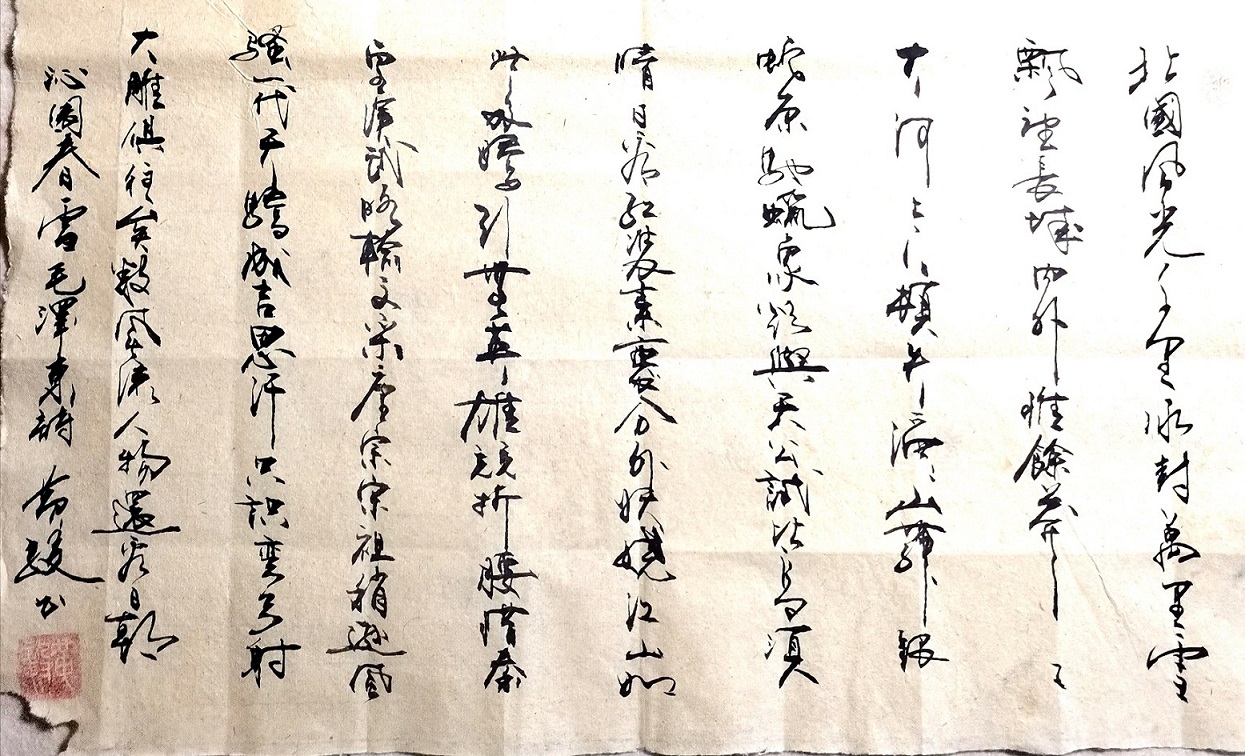 北國風光千里冰封萬里雪
飄望長城內外惟餘莽莽
大河上下頓失滔滔山舞銀
蛇原馳蠟象欲與天公試比高須
晴日看紅裝素裹分外妖嬈江山如
此多嬌引無英雄競折腰惜秦
皇漢武略輸文采唐宗宋祖稍遜風
騷一代天驕成吉思汗只識彎弓射
大雕俱往矣數風流人物還看今朝
沁園春雪毛澤東詩 書